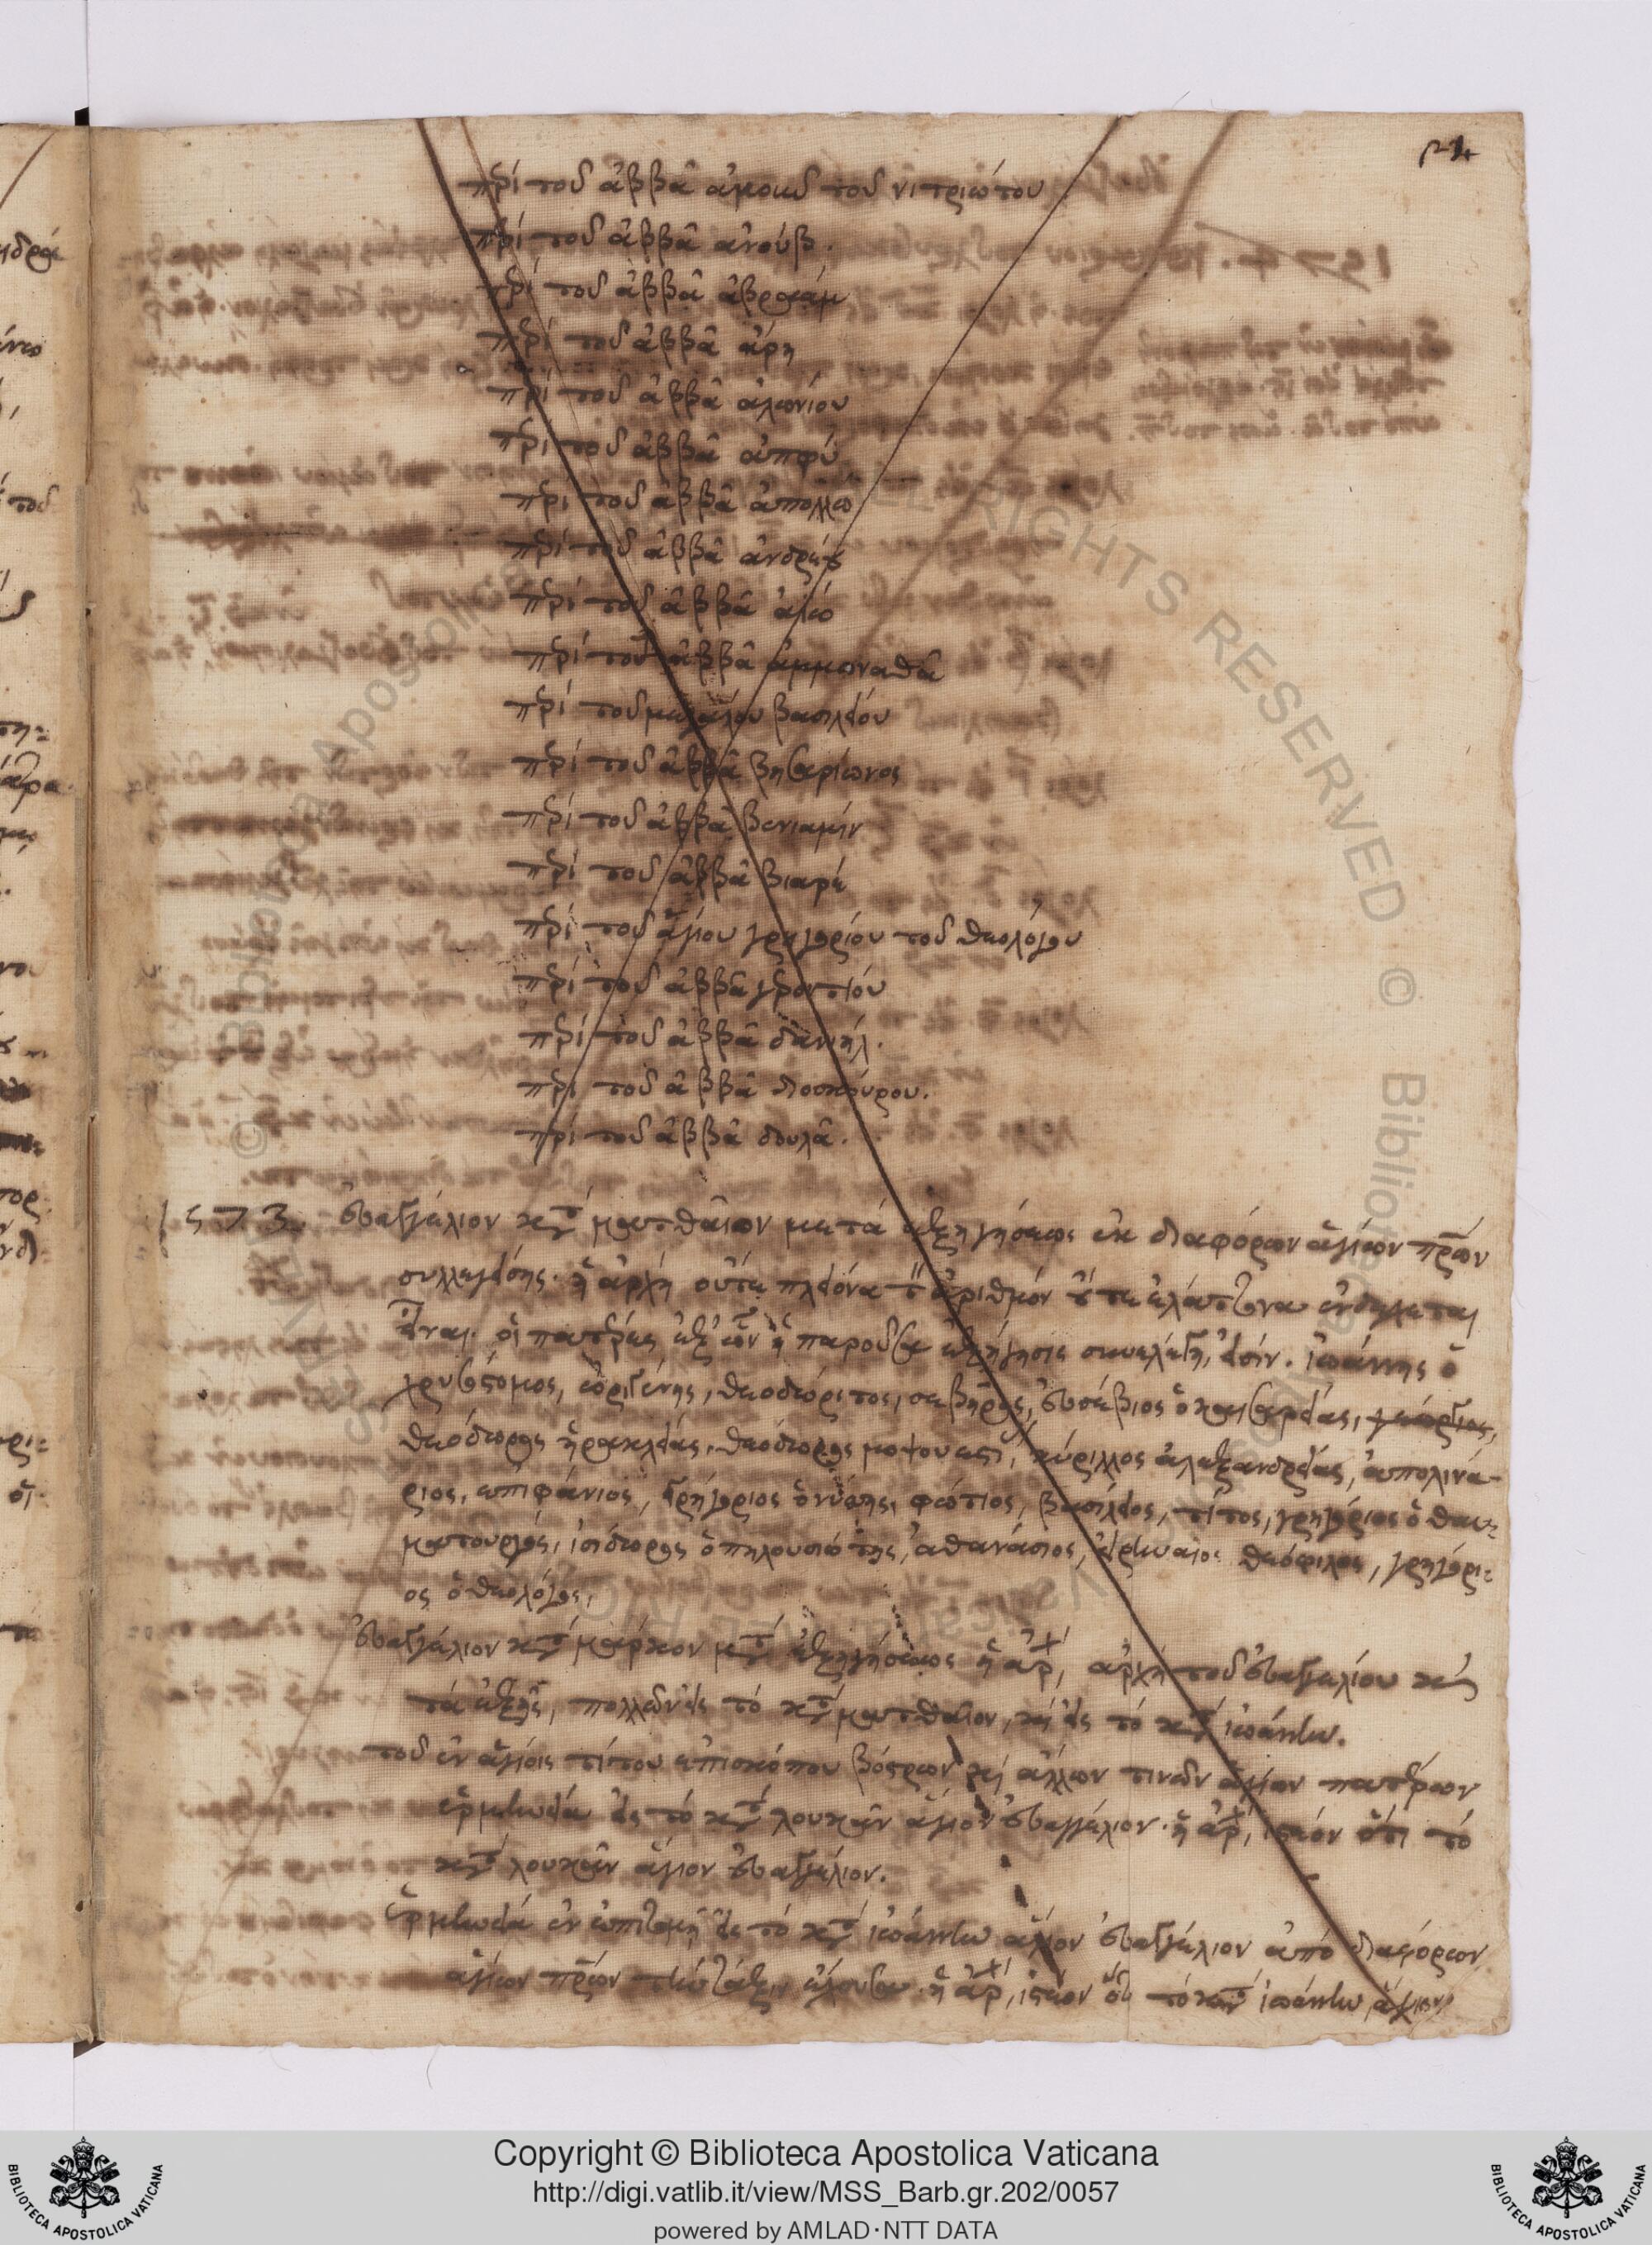 περί τοῦ ἀββᾶ ἀμοιῦ τοῦ νιτριώτου
περί τοῦ ἀββᾶ ἀνούβ.
περί τοῦ ἀββᾶ ἀβραάμ
περί τοῦ ἀββᾶ ἀρη
περί τοῦ ἀββᾶ ἀλωνίου
περί τοῦ ἀββᾶ ἀπφύ
περί τοῦ ἀββᾶ ἀπολλώ
περί τοῦ ἀββᾶ ἀνδρέου
περί τοῦ ἀββᾶ ἀιώ
περί τοῦ ἀββᾶ ἀμμωναθᾶ
περί τοῦ μεγάλου βασιλείου
περί τοῦ ἀββᾶ βησαρίωνος
περί τοῦ ἀββᾶ βενιαμίν
περί τοῦ ἀββᾶ βιαρέ
περί τοῦ ἁγίου γρηγορίου τοῦ θεολόγου
περί τοῦ ἀββᾶ γεροντίου
περί τοῦ ἀββᾶ δανιήλ.
περί τοῦ ἀββᾶ διοσκόυρου.
περί τοῦ ἀββᾶ δουλᾶ.
εὐαγγέλιον κατά ματθαῖον μετά ἐξηγήσεως ἐκ διαφόρων ἁγίων πρῶν
συλλεγείσης. ἡ ἀρχή οὔτε πλείονα τ ἀριθμόν οὔτε ἐλάττονα ἐνδέχεται
εἶναι. οἱ πατέρες ἐξ ὧν ἡ παροῦσα ἐξήγησις συνελέγη, εἰσίν. ἰωάννης ὁ
χρυσόστομος, ὠριγένης, θεοδώριτος, σεβῆρος, εὐσέβιος ὁ καισαρείας, γεώργιος,
θεόδωρος ἡρακλείας, θεόδωρος μοψουεστί, κύριλλος ἀλεξανδρείας, ἀπολινά-
ριος, ἐπιφάνιος, γρηγόριος ὁ νύσης, φώτιος, βασίλειος, τίτος, γρηγόριος ὁ θαυ=
ματουργός, ἰσίδωρος ὁ πηλουσιώτης, ἀθανάσιος, εἰρηναῖος θεόφιλος, γρηγόρι=
ος ὁ θεολόγος.
εὐαγγέλιον κατά μάρκον μετά ἐξηγήσεως ἡ ἀρχ, ἀρχή τοῦ εὐαγγελίου καί
τά ἑξῆς, πολλῶν εἰς τό κατά ματθαῖον, καί εἰς τό κατά ἰωάννην.
τοῦ ἐν ἁγίοις τίτου ἐπισκόπου βόστρων καί ἄλλων τινῶν ἁγίων πατέρων
ἑρμηνεία εἰς τό κατά λουκᾶν ἅγιον εὐαγγέλιον. ἡ ἀρχ, ἰστέον ὅτι τό
κατά λουκᾶν ἅγιον εὐαγγέλιον.
ἑρμηνεία ἐν ἐπιτομῇ εἰς τό κατά ἰωάννην ἅγιον εὐαγγέλιον ἀπό διαφόρων
ἁγίων πρῶν τήν τάξιν ἔχουσα. ἡ ἀρχ, ἰστέον ὅτι τό κατά ἰωάννην ἅγιον
© Biblioteca Apostolica Vaticana
ALL RIGHTS RESERVED
Copyright © Biblioteca Apostolica Vaticana
http://digi.vatlib.it/view/MSS_Barb.gr.202/0057
powered by AMLAD·NTT DATA
BIBLIOTECA APOSTOLICA VATICANA
BIBLIOTECA APOSTOLICA VATICANA